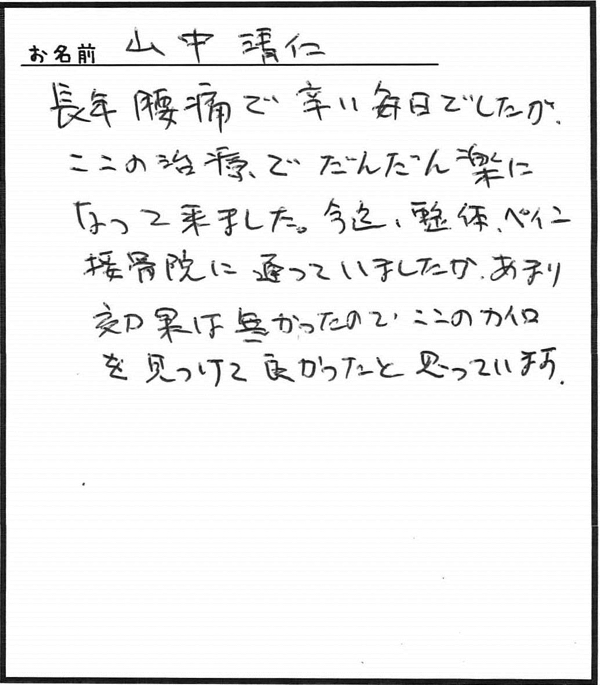 お名前 山中靖仁
長年腰痛で辛い毎日でしたが、
ここの治療、でだんだん楽に
なって来ました。今迄、整体、ペイン
接骨院に通っていましたが、あまり
効果は無かったので、ここのカイロ
を見つけて良かったと思っています。